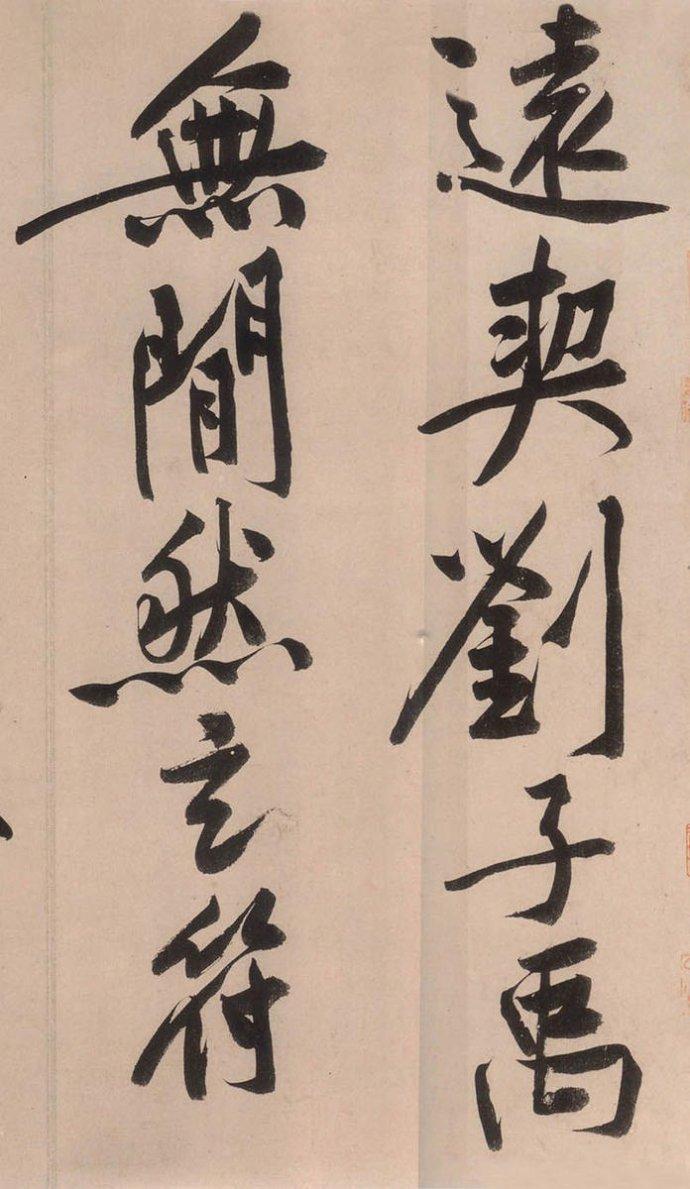 遠契劉子禹
無閒然玄符